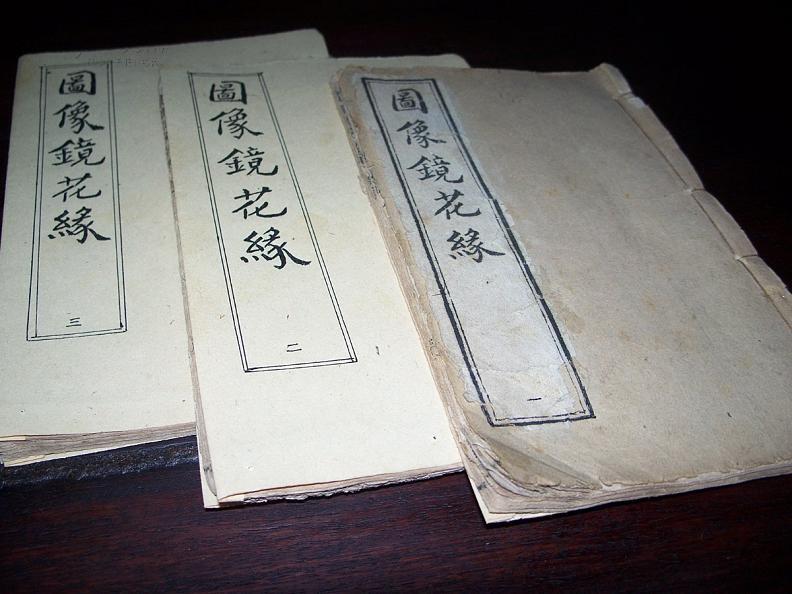 圖像鏡花緣
一
圖像鏡花緣
二
圖像鏡花緣
三